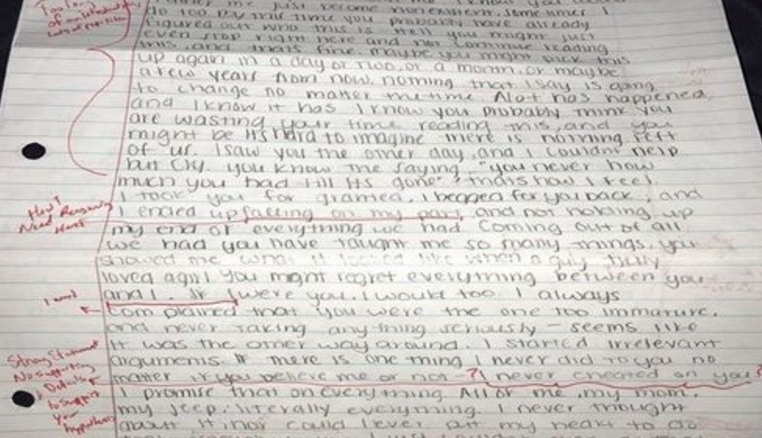 me just become
to too pay that time you probably have already
figured out who this is Hell you might just
even stop right here and not continue reading
this, and that's fine. maybe you might pick this
up again in a day or two, or a month, or maybe
a few years from now, nothing that I say is going
to change no matter the time. Alot has happened,
and I know it has I know you probably think you
are wasting your time reading this, and you
might be its hard to imagine there is nothing left
of us. I saw you the other day, and I couldnt help
but cry. you know the saying "you never know
much you had till its gone" thats how I feel.
I took you for granted, I begged for you back, and
How? Need Reasoning Here
I ended up falling on my part, and not holding up
my end of everything we had. Coming out of all
we had you have taught me so many things. you
showed me what it looked like when a guy truly
loved a girl you might regret everything between you
and I. If I were you, I would too I always
complained that you were the one too immature,
and never taking anything seriously - seems like
it was the other way around. I started irrelevant
Strong Statement No supporting Details to support your hypothesis
arguments. If there is one thing I never did to you no
matter if you believe me or not -? I never cheated on you?
I promise that on everything. All of me, my mom,
my jeep, literally everything. I never thought
about it, nor could I ever put my heart to do